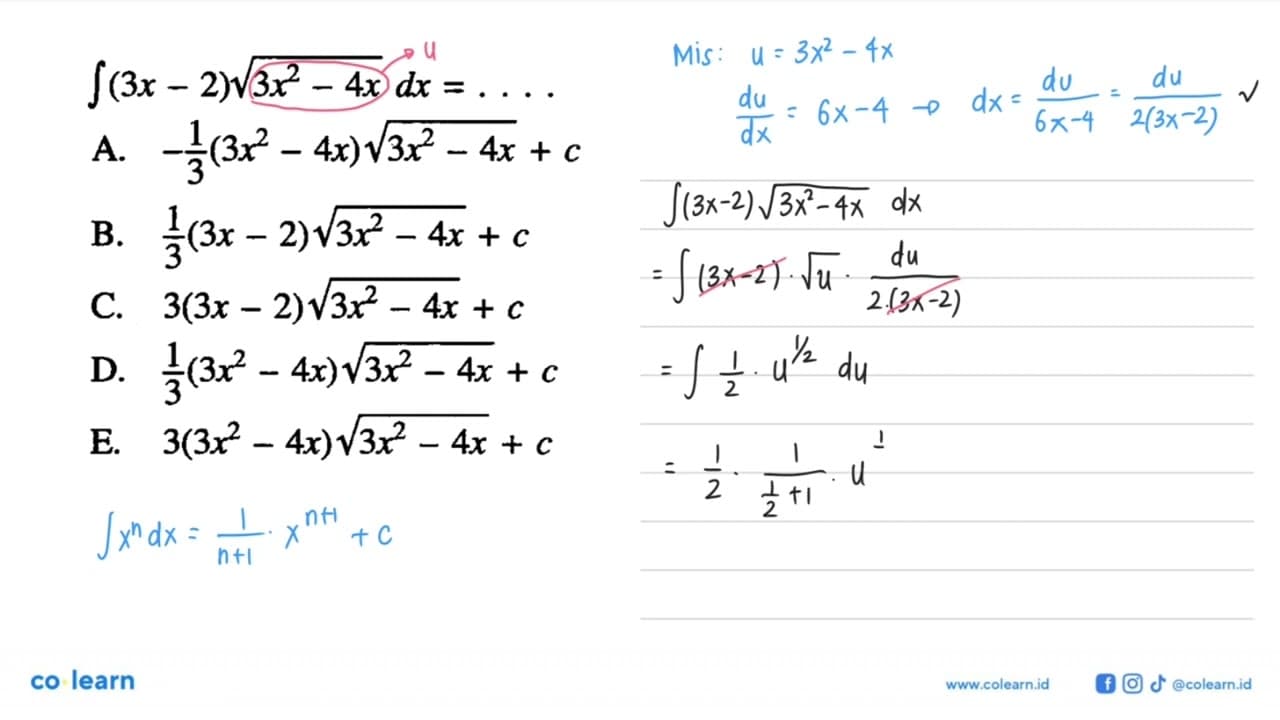 ∫(3x − 2)√(3x² − 4x) dx = . . . .
u
A. −1/3(3x² − 4x)√(3x² − 4x) + c
B. 1/3(3x − 2)√(3x² − 4x) + c
C. 3(3x − 2)√(3x² − 4x) + c
D. 1/3(3x² − 4x)√(3x² − 4x) + c
E. 3(3x² − 4x)√(3x² − 4x) + c
∫xⁿ dx = 1/(n+1) · xⁿ⁺¹ + c
Mis: u = 3x² − 4x
du/dx = 6x−4 → dx = du/(6x−4) = du/(2(3x−2)) ✓
∫(3x−2)√(3x²−4x) dx
= ∫(3x−2) · √u · du/(2·(3x−2))
= ∫ 1/2 · u^½ du
= 1/2 · 1/(1/2 +1) · u^1
co learn
www.colearn.id @colearn.id